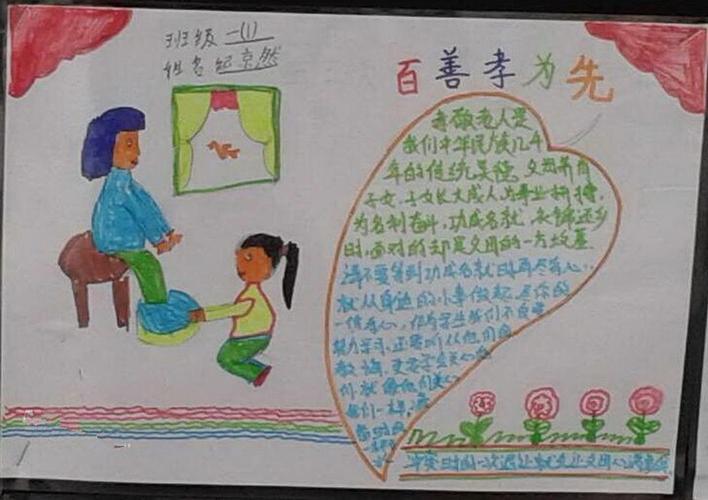 班级 一(1)
姓名 纪京然
百善孝为先
孝敬老人是
我们中华民族几千
年的传统美德 父母养育
子女,子女长大成人为事业拼搏,
为名利奋斗,功成名就,衣锦还乡
时,面对的却是父母的一方坟墓
不要等到功成名就时再尽孝心,
就从身边的小事做起,尽你的
一份孝心,作为学生我们不但要
努力学习,还要听从他们的
教诲,
们就像他们关心
我们一样,